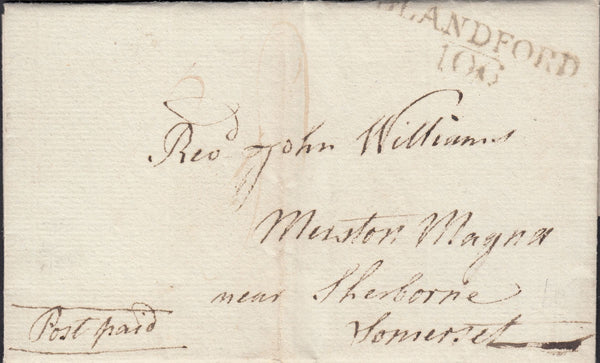 BLANDFORD
106
Revd John Williams
Merston Magna
near Sherborne
Somerset
Post paid